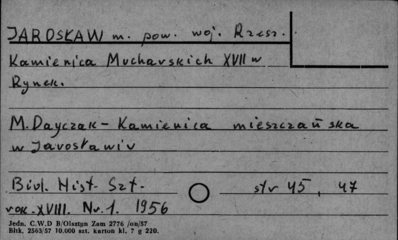 JAROSŁAW m. pow. woj. Rzesz.
Kamienica Mucharskich XVII w
Rynek.
M. Dayczak - Kamienica mieszczańska
w Jarosławiu
Biul. Hist. Szt. str 45, 47
rok. XVIII. Nr. 1. 1956
Jedn. C.W.D B/Olsztyn Zam 2776 /on/57
Bltk. 2563/57 10.000 szt. karton kl. 7 g 220.